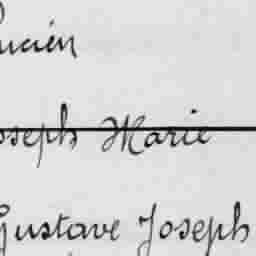 Lucien
Joseph Marie
Gustave Joseph